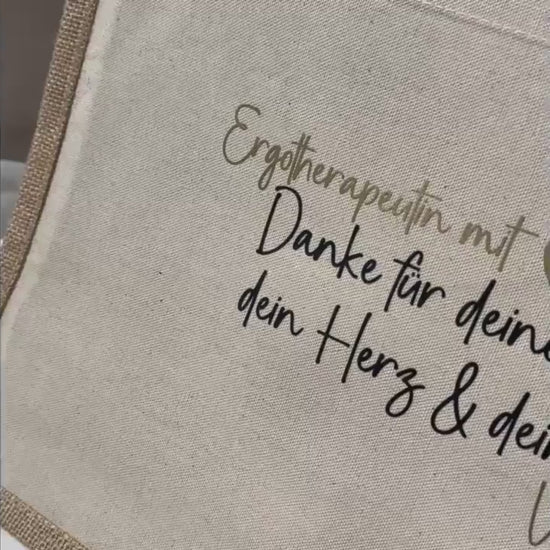 Ergotherapeutin mit
Danke für deine
dein Herz & dein